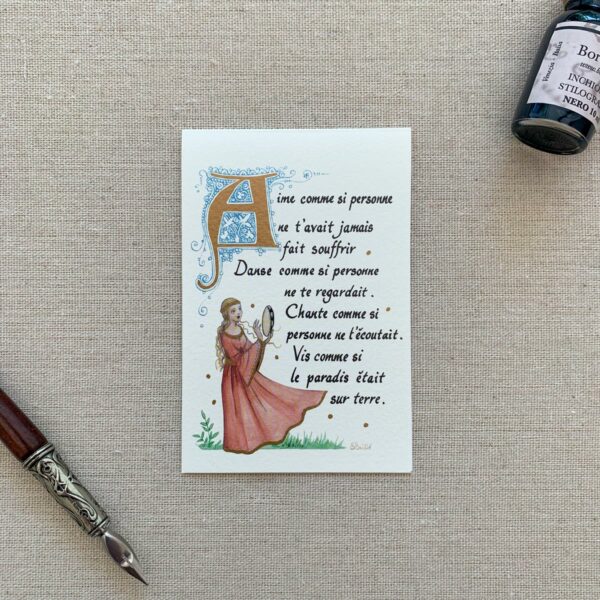 Aime comme si personne
ne t'avait jamais
fait souffrir
Danse comme si personne
ne te regardait.
Chante comme si
personne ne t'écoutait.
Vis comme si
le paradis était
sur terre.
Venezia - Italia
NERO